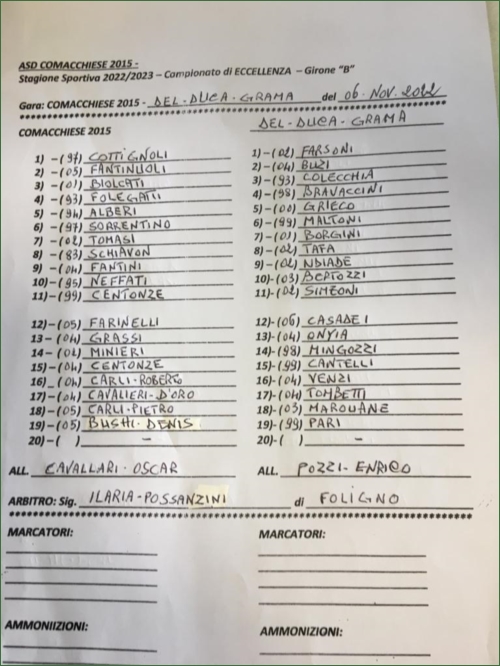 ASD COMACCHIESE 2015 -
Stagione Sportiva 2022/2023 – Campionato di ECCELLENZA – Girone "B"
Gara: COMACCHIESE 2015 - DEL-DUCA-GRAMA del 06. NOV. 2022
COMACCHIESE 2015
1) – (97) COTTIGNOLI
2) – (05) FANTINUOLI
3) – (01) BIOLCATI
4) – (93) FOLEGATTI
5) – (94) ALBERI
6) – (97) SORRENTINO
7) – (02) TOMASI
8) – (83) SCHIAVON
9) – (04) FANTINI
10) – (95) NEFFATI
11) – (99) CENTONZE
12) – (05) FARINELLI
13) – (04) GRASSI
14 – (04) MINIERI
15) – (04) CENTONZE
16) – (04) CARLI-ROBERTO
17) – (04) CAVALIERI-D'ORO
18) – (05) CARLI-PIETRO
19) – (05) BUSHI-DENIS
20) – ( ) –
DEL-DUCA-GRAMA
1) – (02) FARSONI
2) – (04) BUZI
3) – (93) COLECCHIA
4) – (98) BRAVACCINI
5) – (00) GRIECO
6) – (99) MALTONI
7) – (01) BORGINI
8) – (02) TAFA
9) – (02) NDIADE
10) – (03) BERTOZZI
11) – (02) SIMEONI
12) - (06) CASADEI
13) - (04) ONYIA
14) - (98) MINGOZZI
15) - (99) CANTELLI
16) - (04) VENZI
17) - (04) TOMBETTI
18) - (03) MAROUANE
19) - (99) PARI
20) - ( ) –
ALL. CAVALLARI-OSCAR ALL. POZZI-ENRICO
ARBITRO: Sig. ILARIA-POSSANZINI di FOLIGNO
MARCATORI: MARCATORI:
AMMONIIZIONI: AMMONIZIONI: